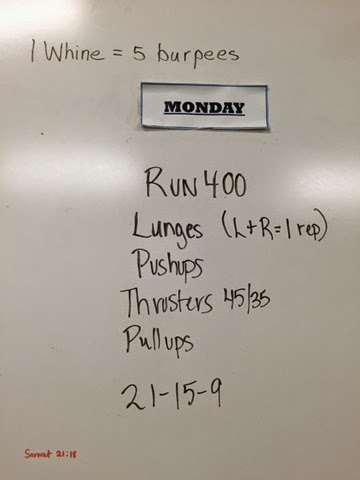 1 Whine = 5 burpees
MONDAY
RUN 400
Lunges (L+R=1 rep)
Pushups
Thrusters 45/35
Pullups
21-15-9
21:18